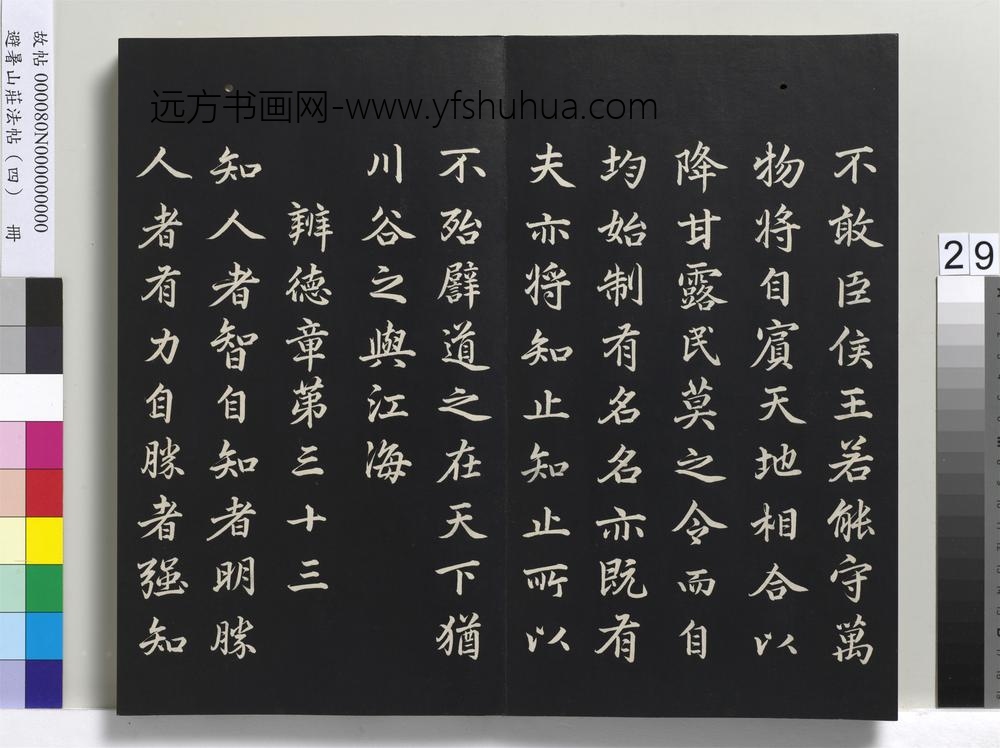 故帖 000080N000000000
避暑山莊法帖（四） 冊
远方书画网-www.yfshuhua.com
29
不敢臣侯王若能守萬
物將自賓天地相合以
降甘露民莫之令而自
均始制有名名亦既有
夫亦將知止知止所以
不殆譬道之在天下猶
川谷之與江海
辨德章第三十三
知人者智自知者明勝
人者有力自勝者强知